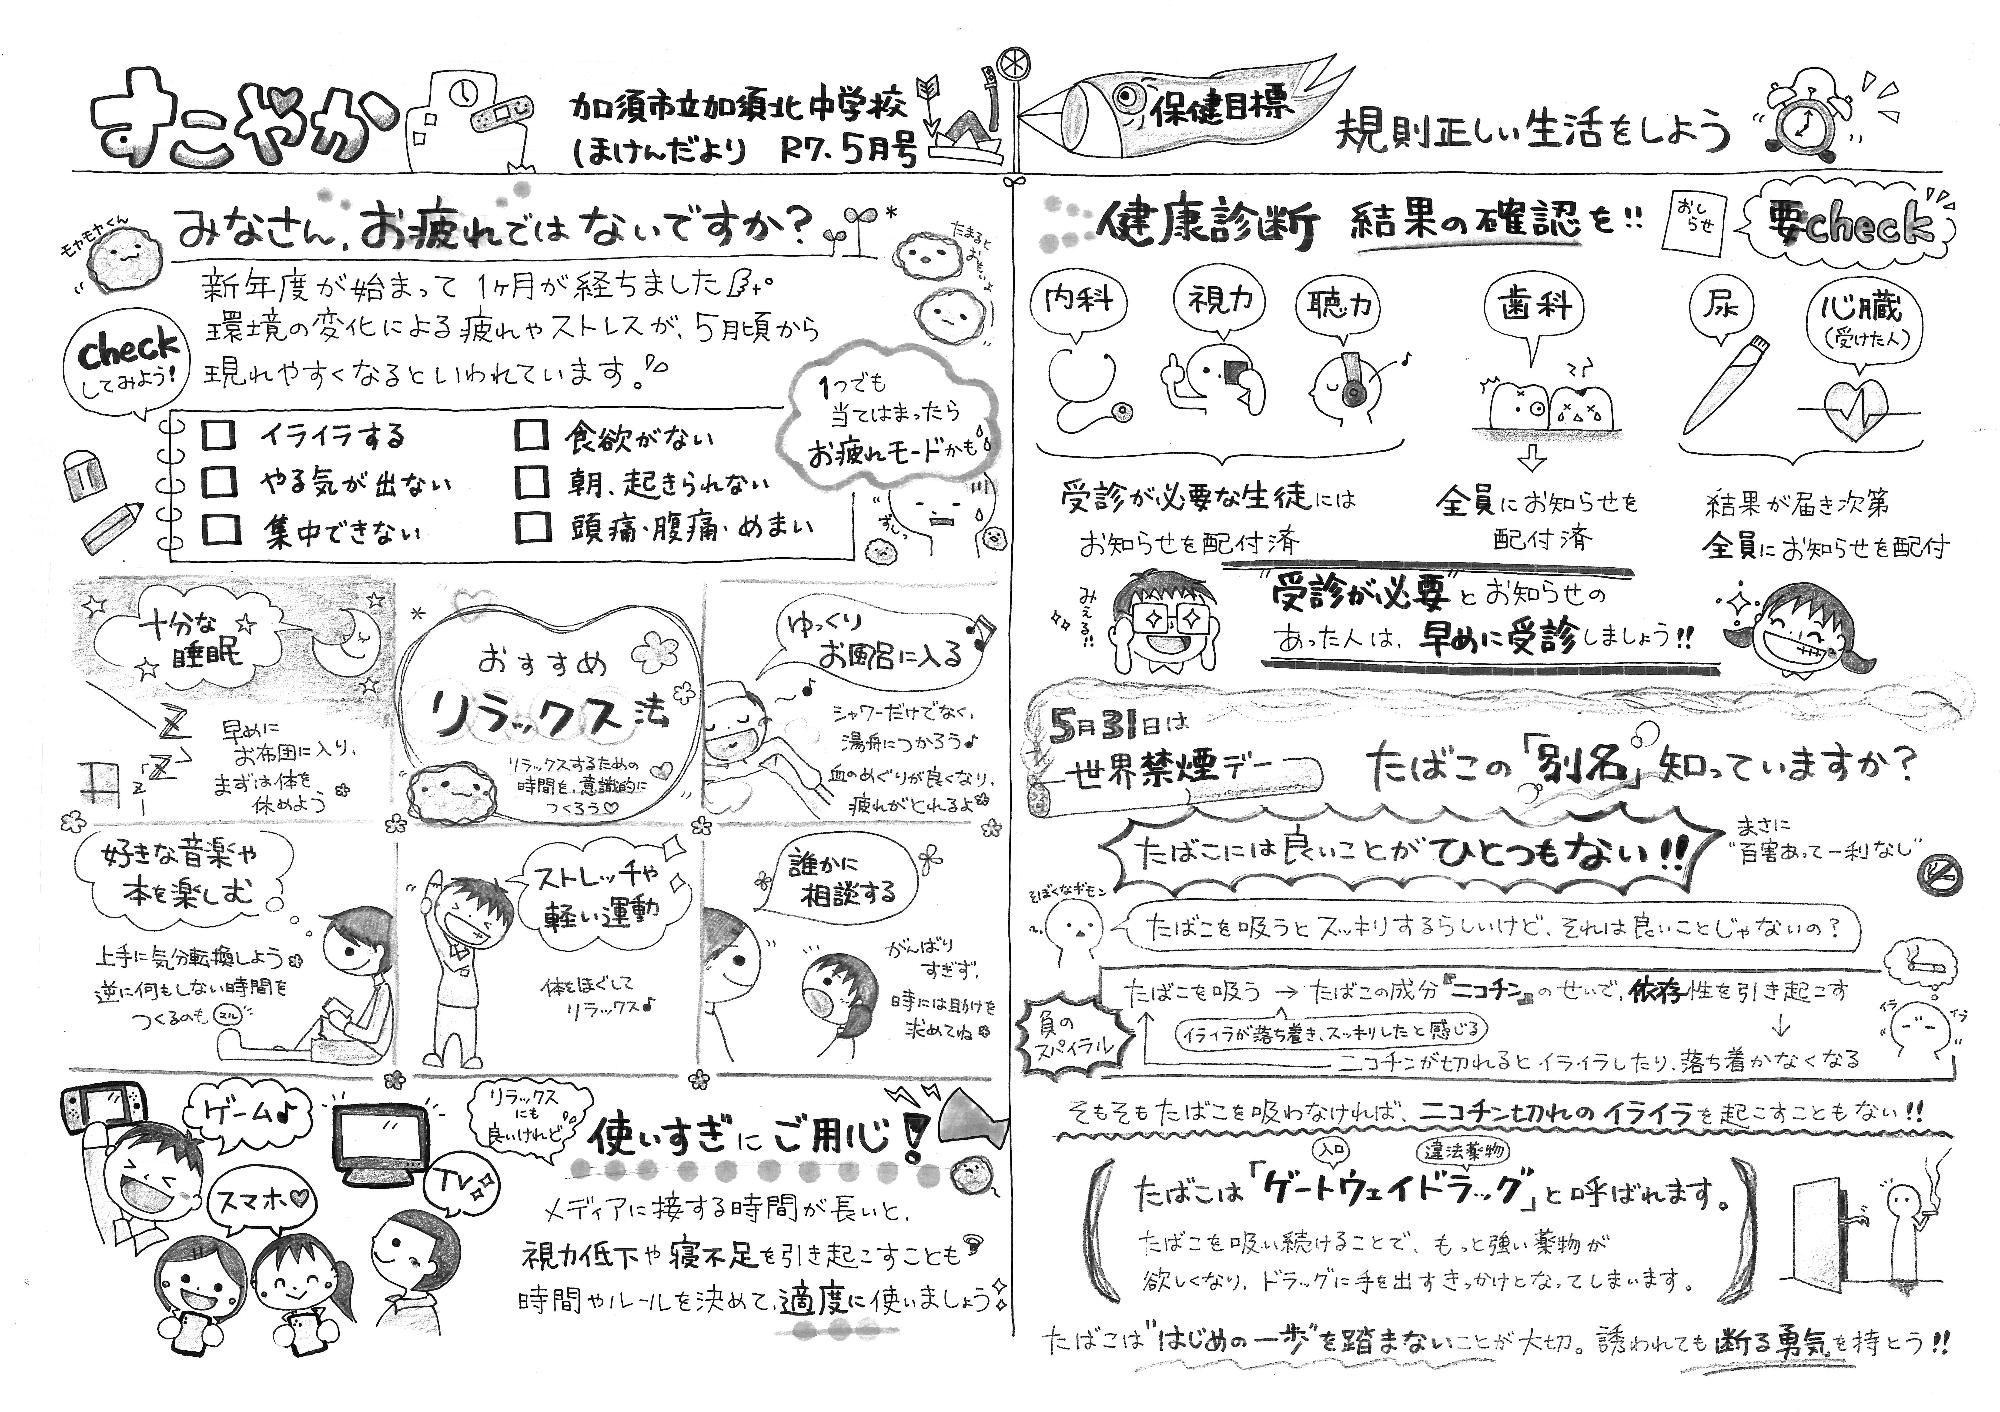 すこやか
加須市立加須北中学校
ほけんだより R7.5月号
保健目標
規則正しい生活をしよう
みなさん、お疲れではないですか?
モヤモヤくん
たまると
おもい
新年度が始まって1ヶ月が経ちました
環境の変化による疲れやストレスが、5月頃から
現れやすくなるといわれています。
check
してみよう!
1つでも
当てはまったら
お疲れモードかも
□ イライラする
□ 食欲がない
□ やる気が出ない
□ 朝、起きられない
□ 集中できない
□ 頭痛・腹痛・めまい
ずしっ
十分な
睡眠
早めに
お布団に入り、
まずは体を
休めよう
おすすめ
リラックス法
リラックスするための
時間を、意識的に
つくろう♡
ゆっくり
お風呂に入る
シャワーだけでなく、
湯舟につかろう♪
血のめぐりが良くなり、
疲れがとれるよ
好きな音楽や
本を楽しむ
上手に気分転換しよう
逆に何もしない時間を
つくるのも
ストレッチや
軽い運動
体をほぐして
リラックス♪
誰かに
相談する
がんばり
すぎず、
時には助けを
求めてね
ゲーム♪
スマホ♡
TV
リラックス
にも
良いけれど
使いすぎにご用心!
メディアに接する時間が長いと、
視力低下や寝不足を引き起こすことも
時間やルールを決めて、適度に使いましょう
健康診断 結果の確認を!!
おしらせ
要check
内科
視力
聴力
歯科
尿
心臓
(受けた人)
受診が必要な生徒には
お知らせを配付済
全員にお知らせを
配付済
結果が届き次第
全員にお知らせを配付
みえる!!
"受診が必要"とお知らせの
あった人は、早めに受診しましょう!!
5月31日は
世界禁煙デー
たばこの「別名」知っていますか?
たばこには良いことがひとつもない!!
まさに
"百害あって一利なし"
そぼくなギモン
たばこを吸うとスッキリするらしいけど、それは良いことじゃないの?
負の
スパイラル
たばこを吸う → たばこの成分『ニコチン』のせいで、依存性を引き起こす
イライラが落ち着き、スッキリしたと感じる
ニコチンが切れるとイライラしたり、落ち着かなくなる
イラ
イラ
そもそもたばこを吸わなければ、ニコチン切れのイライラを起こすこともない!!
入口
違法薬物
たばこは「ゲートウェイドラッグ」と呼ばれます。
たばこを吸い続けることで、もっと強い薬物が
欲しくなり、ドラッグに手を出すきっかけとなってしまいます。
たばこは"はじめの一歩"を踏まないことが大切。誘われても断る勇気を持とう!!